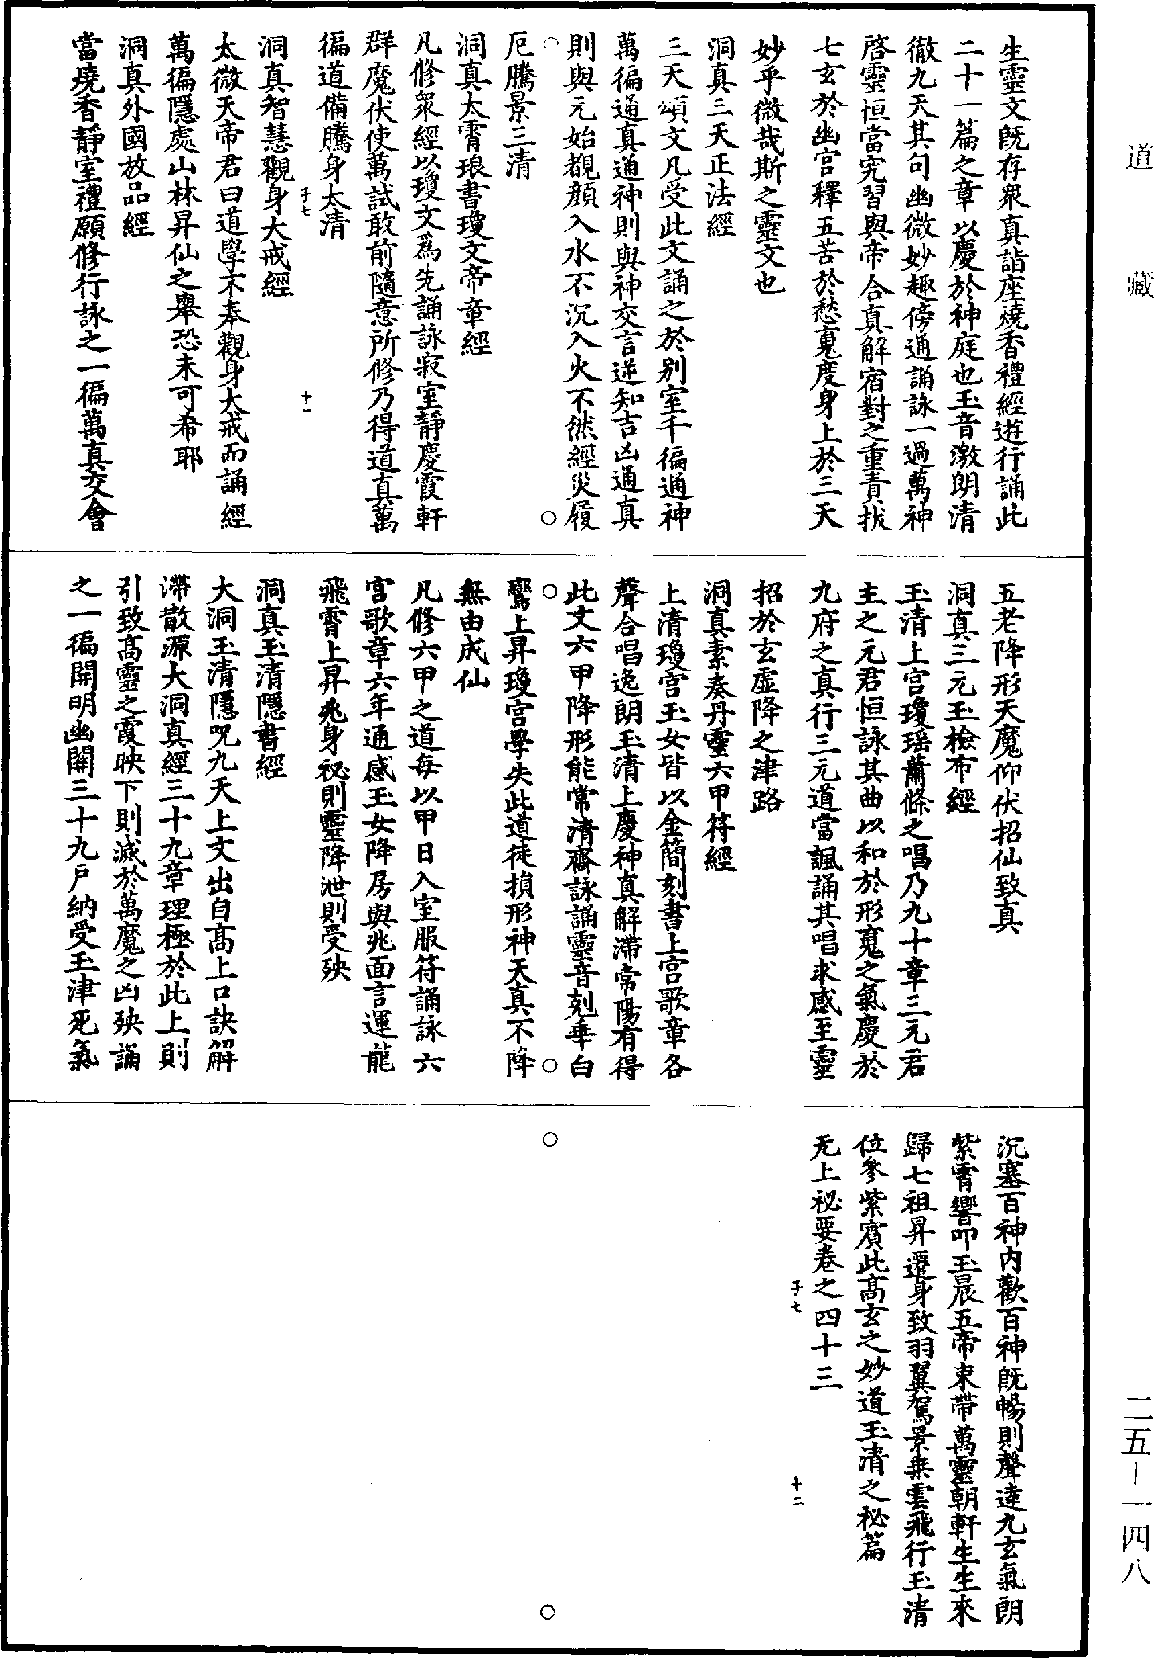 道藏
生靈文既存衆真詣座燒香禮經遊行誦此
二十一篇之章以慶於神庭也玉音激朗清
徹九天其句幽微妙趣傍通誦詠一過萬神
啓靈恒當究習與帝合真解宿對之重責拔
七玄於幽宫釋五苦於愁䰟度身上於三天
妙乎微哉斯之靈文也
洞真三天正法經
三天頌文凡受此文誦之於别室千徧通神
萬徧通真通神則與神交言逆知吉凶通真
則與元始覩顔入水不沉入火不然經災履
厄騰景三清
洞真太霄琅書瓊文帝章經
凡修衆經以瓊文爲先誦詠寂室靜慶霞軒
群魔伏使萬試敢前隨意所修乃得道真萬
徧道備騰身太清
子七
十一
洞真智慧觀身大戒經
太微天帝君曰道學不奉觀身大戒而誦經
萬徧隱處山林昇仙之舉恐未可希耶
洞真外國放品經
當燒香靜室禮願修行詠之一徧萬真交會
五老降形天魔仰伏招仙致真
洞真三元玉檢布經
玉清上宫瓊瑶蕭條之唱乃九十章三元君
主之元君恒詠其曲以和於形䰟之氣慶於
九府之真行三元道當諷誦其唱求感至靈
招於玄虚降之津路
洞真素奏丹靈六甲符經
上清瓊宫玉女皆以金簡刻書上宫歌章各
聲合唱逸朗玉清上慶神真解滯常陽有得
此文六甲降形能常清齋詠誦靈音剋乘白
鸞上昇瓊宫學失此道徒損形神天真不降
無由成仙
凡修六甲之道每以甲日入室服符誦詠六
宫歌章六年通感玉女降房與兆面言運龍
飛霄上昇兆身祕則靈降泄則受殃
洞真玉清隱書經
大洞玉清隱呪九天上文出自高上口訣解
滯散源大洞真經三十九章理極於此上則
引致高靈之霞映下則滅於萬魔之凶殃誦
之一徧開明幽關三十九户納受玉津死氣
沉塞百神内歡百神既暢則聲達九玄氣朗
紫霄響叩玉晨五帝束帶萬靈朝軒生生來
歸七祖昇遷身致羽翼駕景乗雲飛行玉清
位參紫賓此高玄之妙道玉清之祕篇
无上祕要卷之四十三
子七
十二
二五-一四八